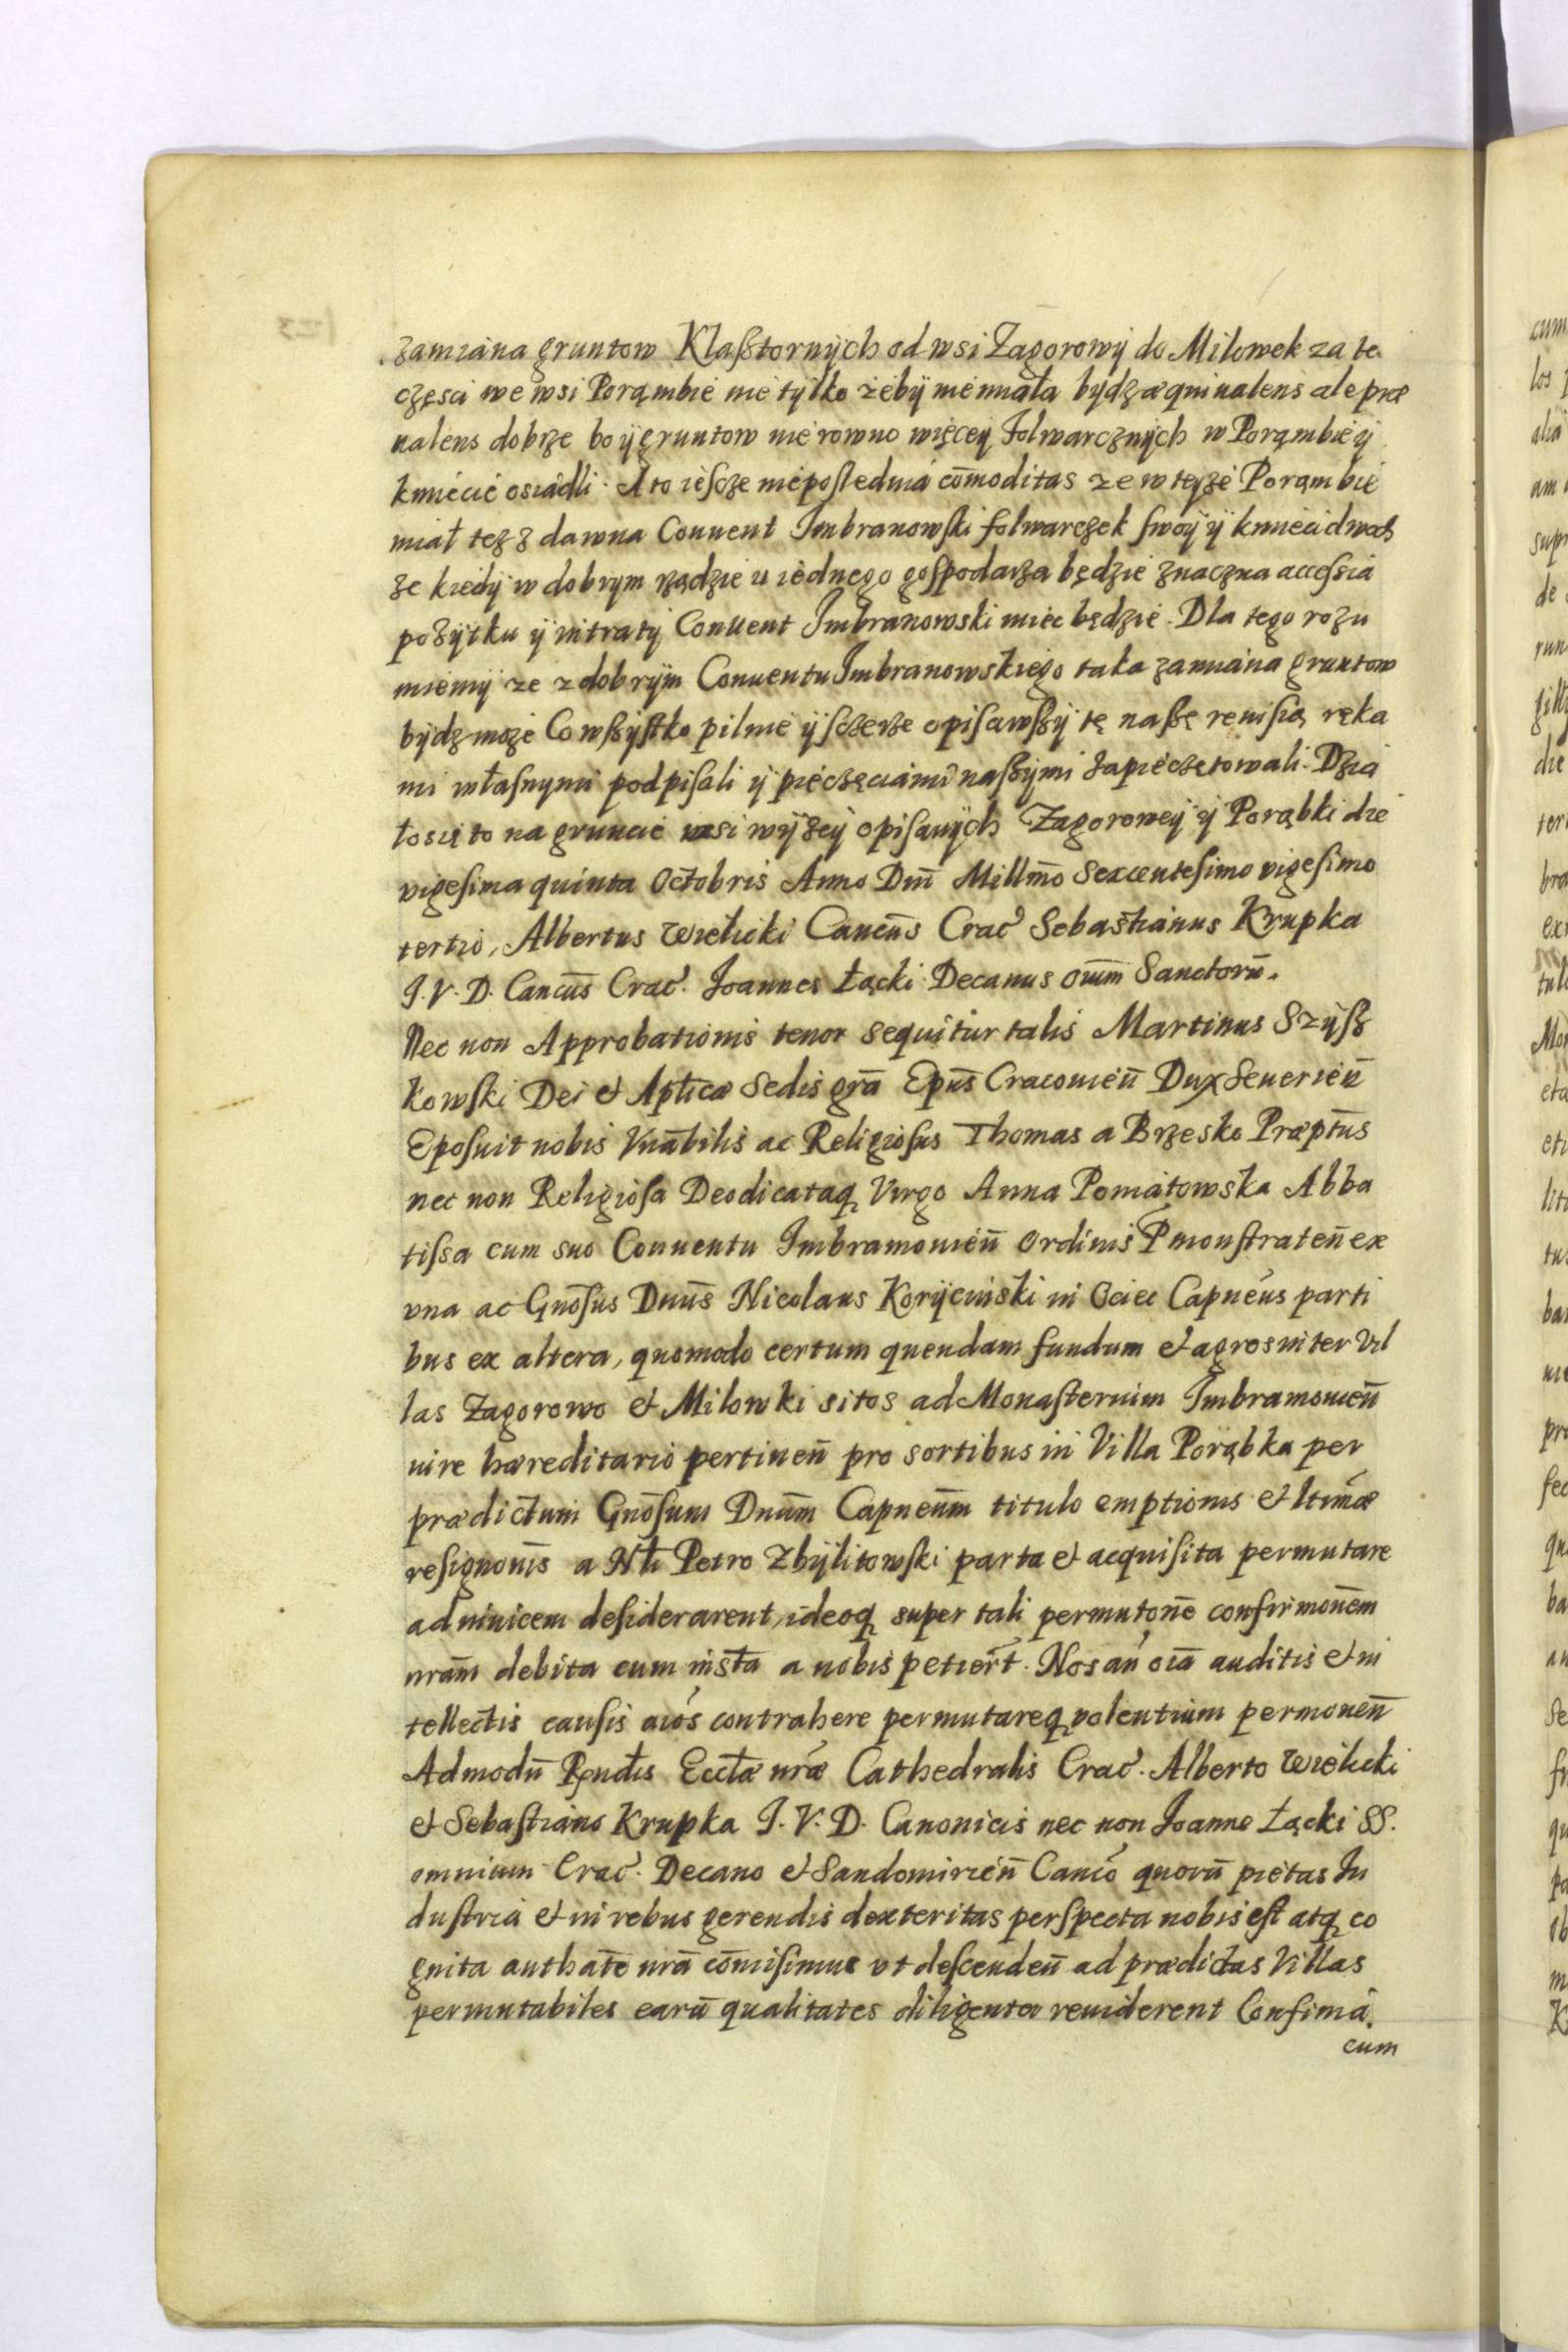 zamiana gruntow Klaßtornÿch od wsi Zagorowÿ do Milowek za te
częsci we wsi Porąmbie nie tÿlko żebÿ nie miała bÿdz æquiualens ale præ
ualens dobrze bo ÿ gruntow nierowno więceÿ folwarcznÿch w Porąmbie ÿ
kmiecie osiadli. A to iescze nieposlednia com̄oditas ze w teÿze Porąmbie
miał tez z dawna Conuent Imbramowski folwarczek swoÿ ÿ kmieci dwoch
ze kiedÿ w dobrym rządzie u iednego gospodarza będzie znaczna accessia
pozÿtku ÿ intratÿ Conuent Imbramowski miec będzie. Dla tego rozu
miemÿ ze z dobrÿm Conuentu Imbramowskiego taka zamiana gruntow
bÿdz moze Co wszÿstko pilnie ÿ sczerze opisawszÿ tę naßę reuisią ręka
mi własnymi podpisali ÿ pieczęciami naszÿmi zapieczętowali. Dzia
łosię to na gruncie wsi wÿzeÿ opisanÿch Zagoroweÿ ÿ Porąbki die
vigesima quinta Octobris Anno Dnī Millmō Sexcentesimo vigesimo
tertio, Albertus Wielicki Cancūs Crac̃ Sebastianus Krupka
J. V. D. Cancūs Crac̃. Joannes Łącki Decanus oīum Sanctorū.
Nec non Approbationis tenor sequitur talis Martinus Szÿsz
kowski Dei et Aplicæ Sedis grā Epūs Cracouien̄ Dux Seuerien̄
Eposuit nobis Vnābilis ac Religiosus Thomas a Brzesko Præptūs
nec non Religiosa Deodicataq Virgo Anna Poniatowska Abba
tissa cum suo Conuentu Imbramouien̄ Ordinis P̃monstraten̄ ex
vna ac Gnōsus Dnūs Nicolaus Korÿcinski in Ociec Capnẽus parti
bus ex altera, quomodo certum quendam fundum et agros inter Vil
las Zagorowo et Milowki sitos ad Monasterium Imbramouien̄
iure hæreditario pertinen̄ pro sortibus in Villa Porąbka per
prædictum Gnōsum Dnūm Capneūm titulo emptionis et ltimæ
resignonīs a Nłi Petro Zbÿlitowski parta et acquisita permutare
ad inuicem desiderarent, ideoq super tali permutonē confirmonēm
nrām debita cum instā a nobis petiert̃. Nos añ oīa auditis et in
tellectis causis aiõs contrahere permutareq volentium permonen̄
Admodū Rndīs Eccłæ nr̃æ Cathedralis Crac̃. Alberto Wielicki
et Sebastiano Krupka J. V. D. Canonicis nec non Joanne Łącki SS.
omnium Crac̃. Decano et Sandomirien̄ Canc̃o quorū pietas In
dustria et in rebus gerendis dexteritas perspecta nobis est atq co
gnita authatē nrā com̄isimus vt descenden̄ ad prædictas Villas
permutabiles earū qualitates diligenter reuiderent Confima.
cum